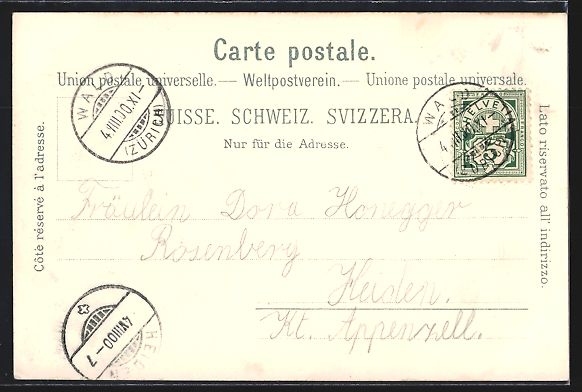 Carte postale.
Union postale universelle. — Weltpostverein. — Unione postale universale.
SUISSE. SCHWEIZ. SVIZZERA.
Nur für die Adresse.
Côté réservé à l'adresse.
Lato riservato all' indirizzo.
WALD
4.VIII.00.XI
(ZÜRICH)
WALD
4.VIII.00.XI
HELVETIA
5
Fräulein Dora Honegger
Rosenberg
Heiden.
Kt. Appenzell.
4.VIII.00–7
HEIDEN